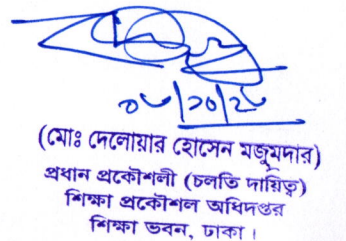 (মোঃ দেলোয়ার হোসেন মজুমদার)
প্রধান প্রকৌশলী (চলতি দায়িত্ব)
শিক্ষা প্রকৌশল অধিদপ্তর
শিক্ষা ভবন, ঢাকা।